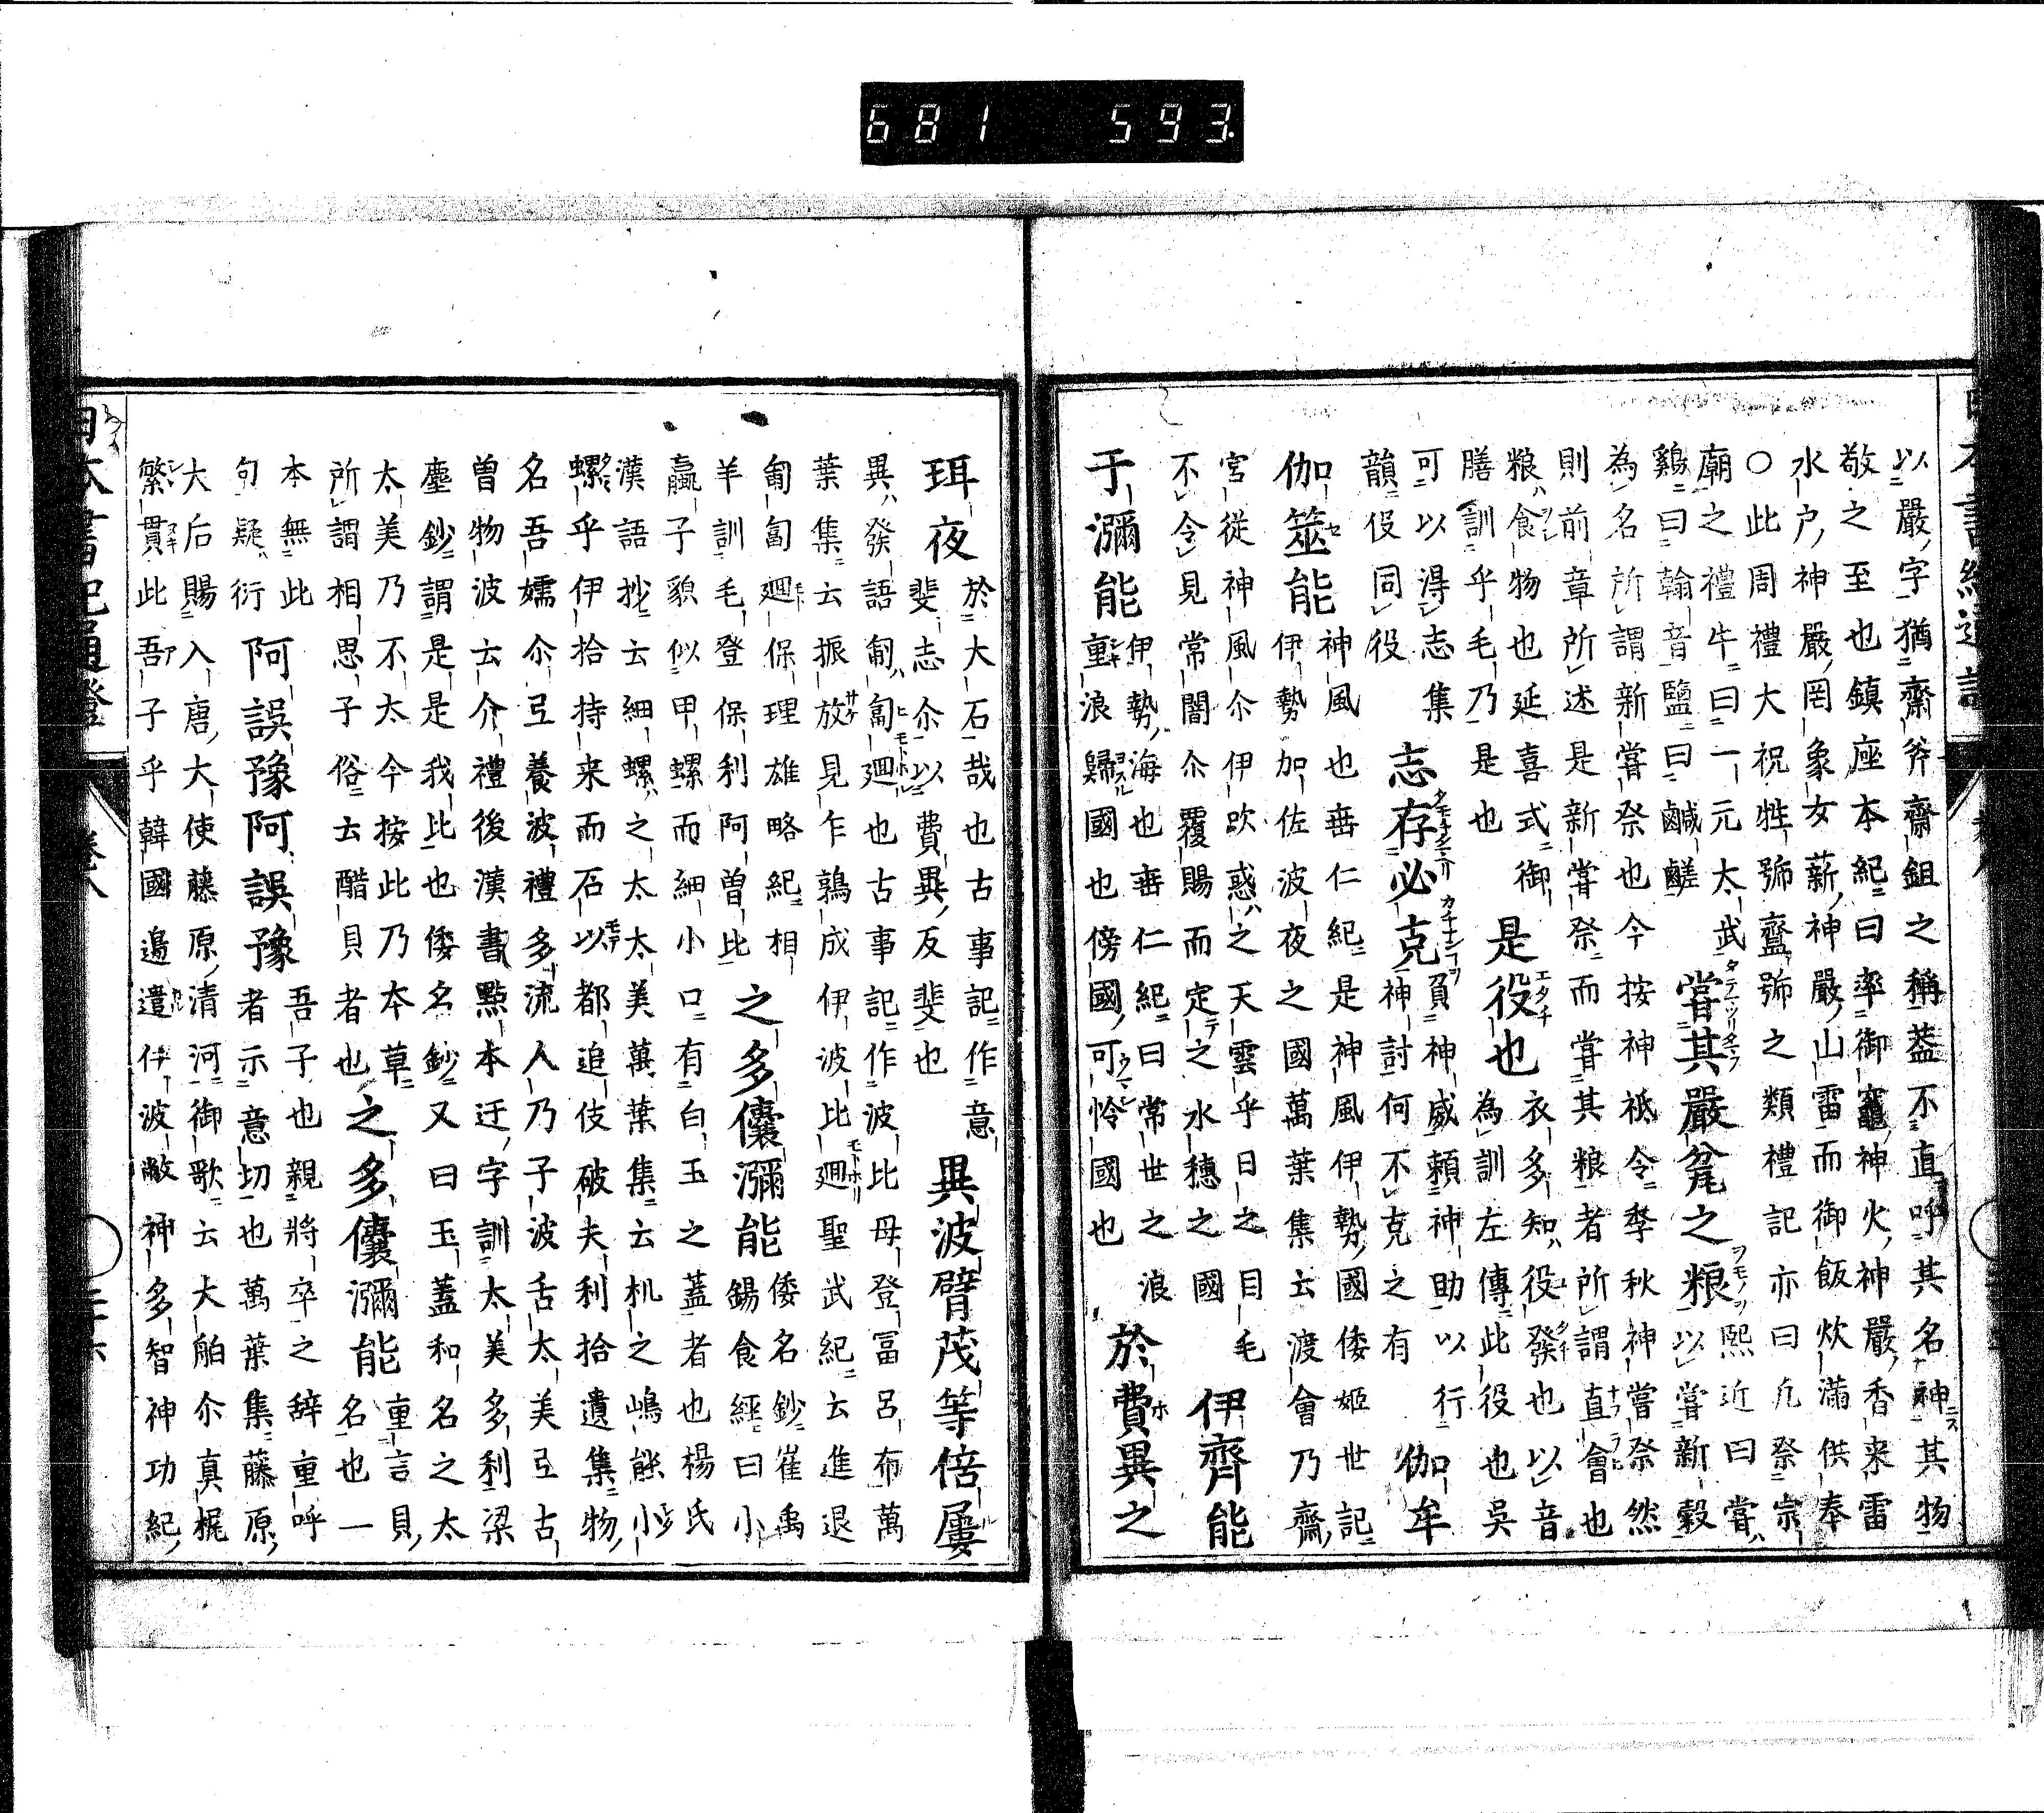 以嚴字猶齋斧齋鉏之稱蓋不直呼其名神其物
敬之至也鎮座本紀曰率御竈神火神嚴香来雷
水戸神嚴罔象女薪神嚴山雷而御飯炊滿供奉
○此周禮大祝牲號齍號之類禮記亦曰凡祭宗
廟之禮牛曰一元太武
雞曰翰音鹽曰鹹鹺
嘗其嚴瓮之粮
熙近曰嘗
以嘗新穀
為名所謂新嘗祭也今按神祇令季秋神嘗祭然
則前章所述是新嘗祭而嘗其粮者所謂直會也
粮食物也延喜式御
膳訓乎毛乃是也
是役也
衣多知役發也以音
為訓左傳此役也吳
可以得志集
韻伇同役
志存必克
負神威頼神助以行
神討何不克之有
伽牟
伽筮能
神風也垂仁紀是神風伊勢國倭姬世記
伊勢加佐波夜之國萬葉集云渡會乃齋
宮從神風尒伊吹惑之天雲乎日之目毛
不令見常闇尒覆賜而定之水穗之國
伊齊能
于瀰能
伊勢海也垂仁紀曰常世之浪
重浪歸國也傍國可怜國也
於費異之
珥夜
於大石哉也古事記作意
斐志尒以費異反斐也
異波臂茂等倍屢
異發語匍匐廻也古事記作波比母登冨呂布萬
葉集云振放見乍鶉成伊波比廻聖武紀云進退
匍匐廻保理雄略紀相
羊訓毛登保利阿曽比
之多儾瀰能
倭名鈔崔禹
錫食經曰小
蠃子貌似甲螺而細小口有白玉之蓋者也楊氏
漢語抄云細螺之太太美萬葉集云机之嶋能小
螺乎伊拾持来而石以都追伎破夫利拾遺集物
名吾嬬尒弖養波禮多流人乃子波舌太美弖古
曽物波云介禮後漢書點本迂字訓太美多利梁
塵鈔謂是是我比也倭名鈔又曰玉蓋和名之太
太美乃不太今按此乃本草
所謂相思子俗云醋貝者也
之多儾瀰能
重言貝
名也一
本無此
句疑衍
阿誤豫阿誤豫
吾子也親將卒之辞重呼
者示意切也萬葉集藤原
大后賜入唐大使藤原清河御歌云大舶尒真梶
繁貫此吾子乎韓國邉遣伊波敝神多智神功紀
日本書紀通證 卷八
681 593